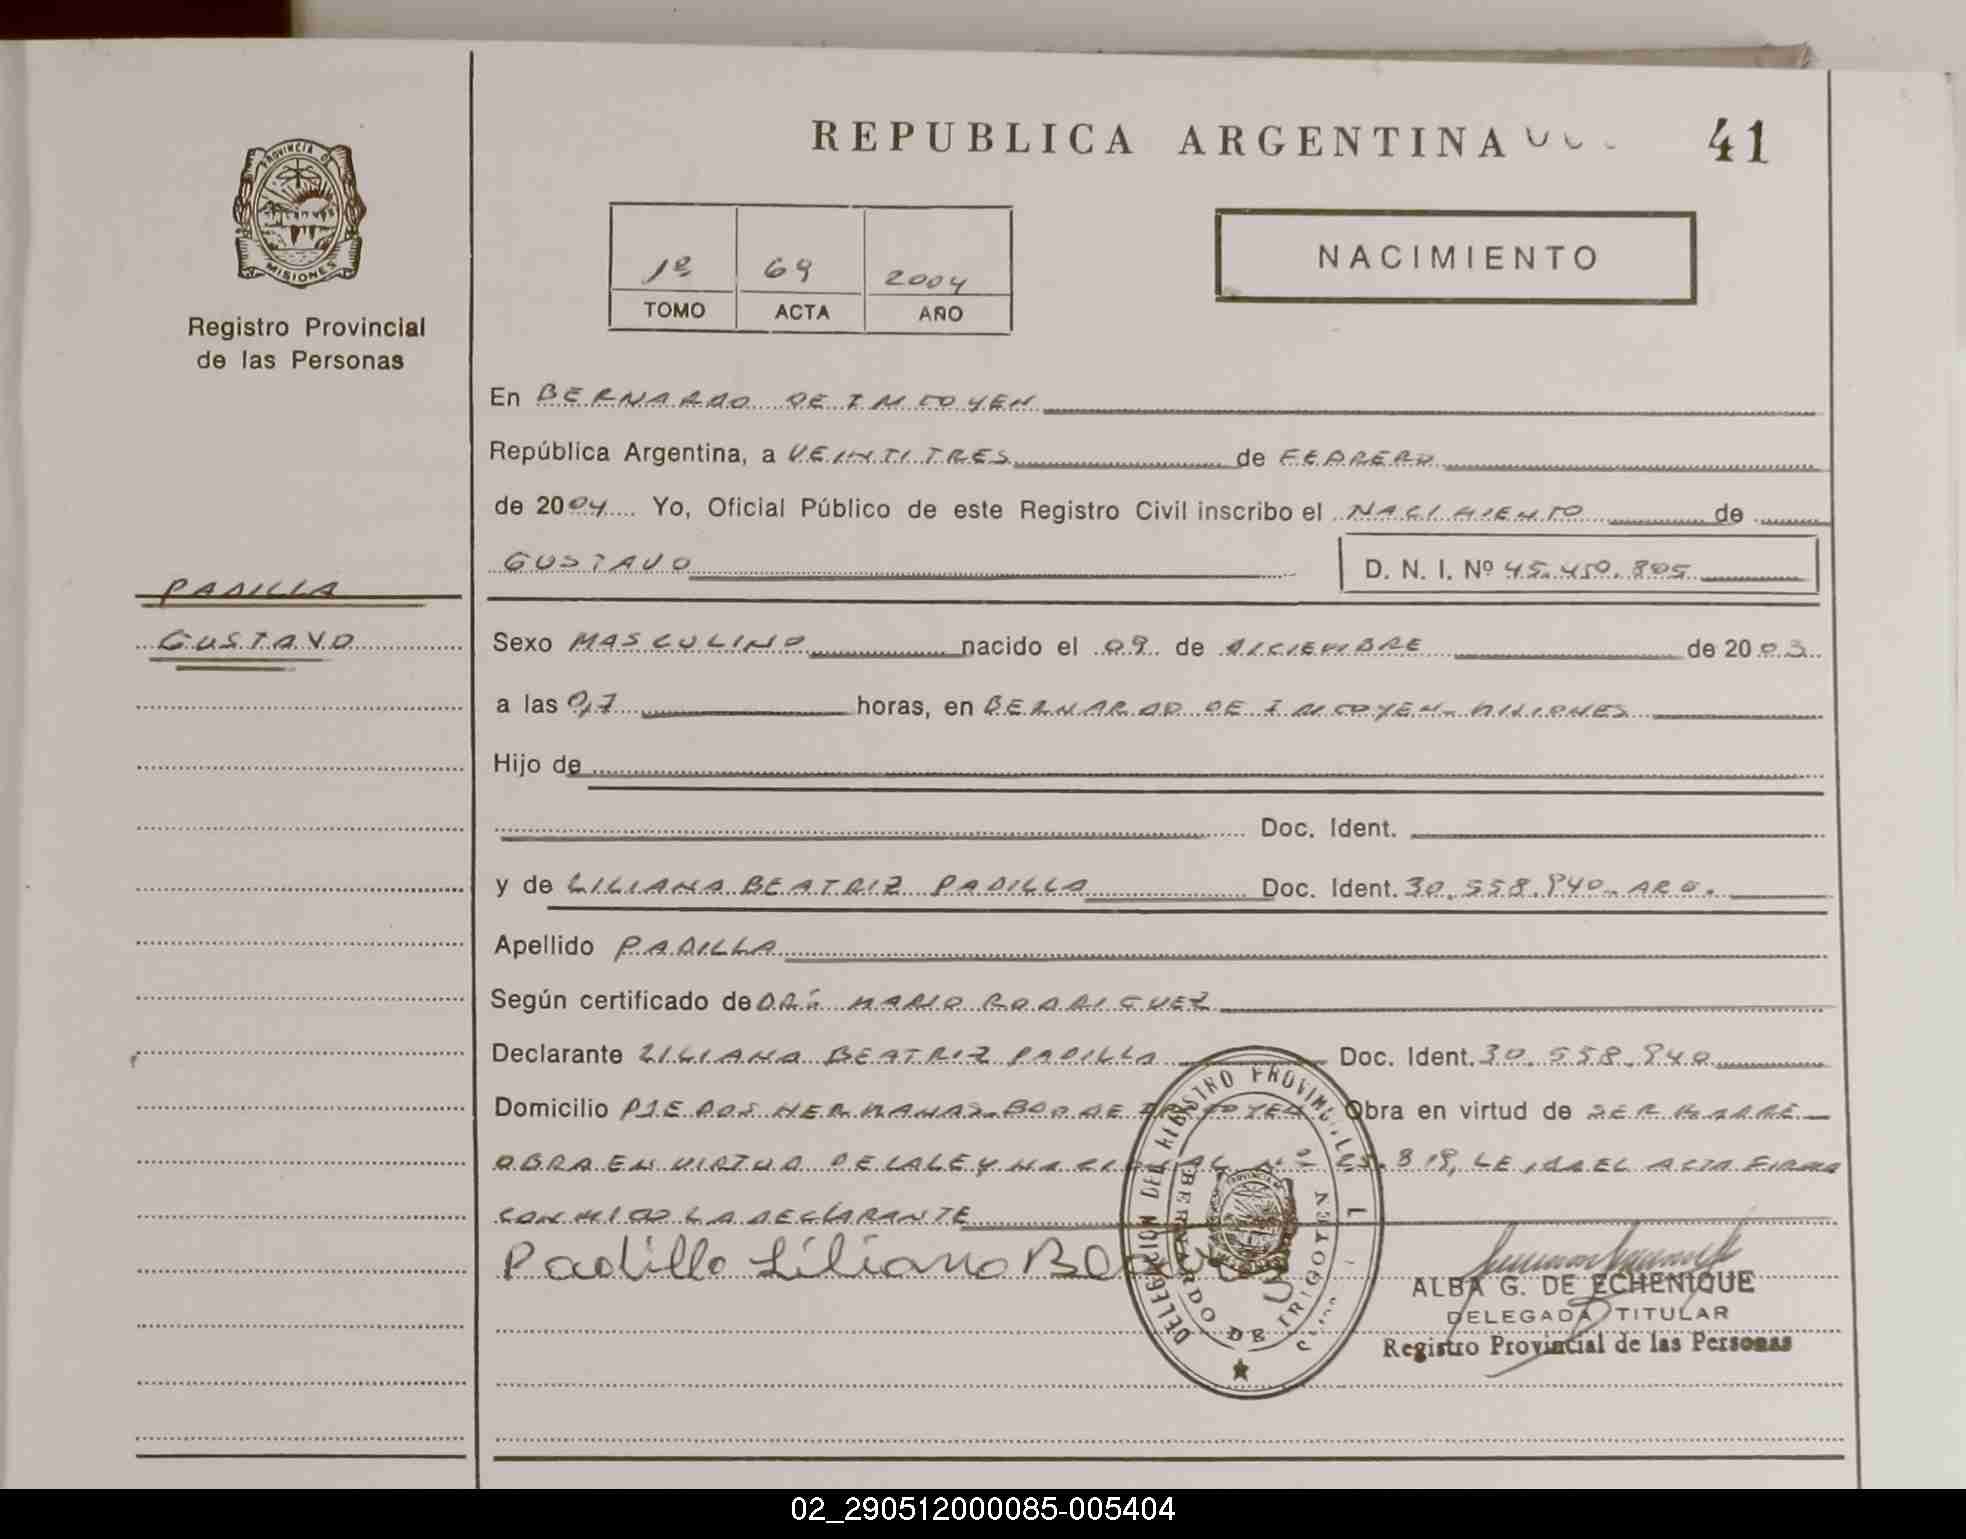 REPUBLICA ARGENTINA
41
PROVINCIA DE
MISIONES
Registro Provincial
de las Personas
1º 69 2004
TOMO ACTA AÑO
NACIMIENTO
En BERNARDO DE IRIGOYEN
República Argentina, a VEINTITRES de FEBRERO
de 2004 Yo, Oficial Público de este Registro Civil inscribo el NACIMIENTO de
GUSTAVO D. N. I. Nº 45.450.805
PADILLA
GUSTAVO
Sexo MASCULINO nacido el 09 de DICIEMBRE de 2003
a las 0,7 horas, en BERNARDO DE IRIGOYEN-MISIONES
Hijo de
Doc. Ident.
y de LILIANA BEATRIZ PADILLA Doc. Ident. 30.558.940-ARG.
Apellido PADILLA
Según certificado de DR. MARIO RODRIGUEZ
Declarante LILIANA BEATRIZ PADILLA Doc. Ident. 30.558.940
Domicilio PJE DOS HERMANAS-BDO DE IRIGOYEN Obra en virtud de SER MADRE
OBRA EN VIRTUD DE LA LEY NACIONAL Nº 25.819, LEIDA EL ACTA FIRMA
CONMIGO LA DECLARANTE
Padilla Liliana Beatriz
DELEGACION DEL REGISTRO PROVINCIAL
BERNARDO DE IRIGOYEN
ALBA G. DE ECHENIQUE
DELEGADA TITULAR
Registro Provincial de las Personas
02_290512000085-005404